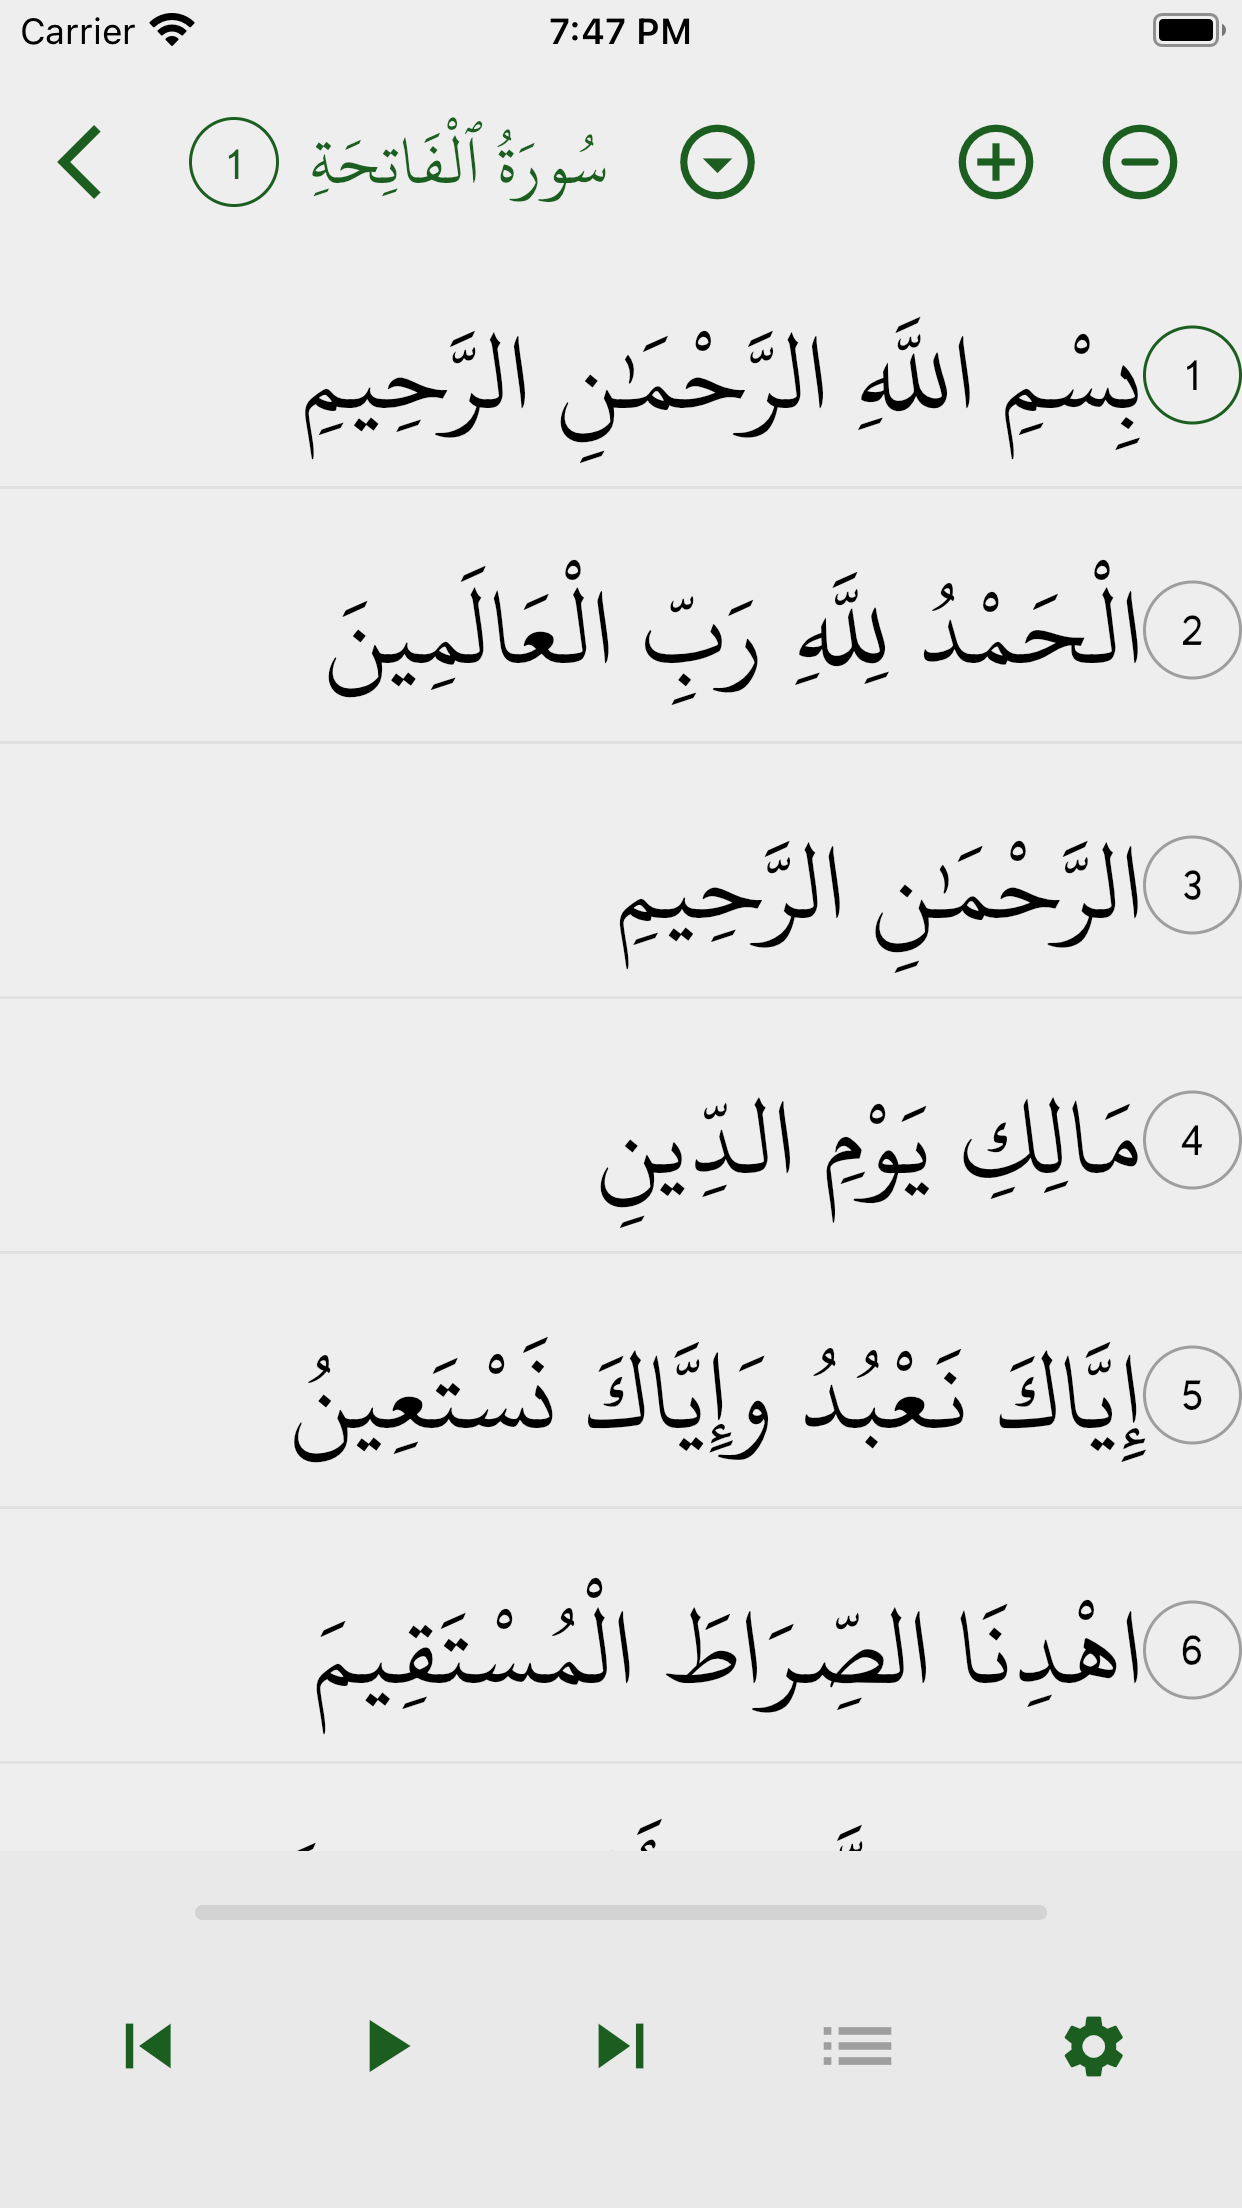 Carrier 7:47 PM
1 سُورَةُ ٱلْفَاتِحَةِ
1 بِسْمِ اللَّهِ الرَّحْمَٰنِ الرَّحِيمِ
2 الْحَمْدُ لِلَّهِ رَبِّ الْعَالَمِينَ
3 الرَّحْمَٰنِ الرَّحِيمِ
4 مَالِكِ يَوْمِ الدِّينِ
5 إِيَّاكَ نَعْبُدُ وَإِيَّاكَ نَسْتَعِينُ
6 اهْدِنَا الصِّرَاطَ الْمُسْتَقِيمَ